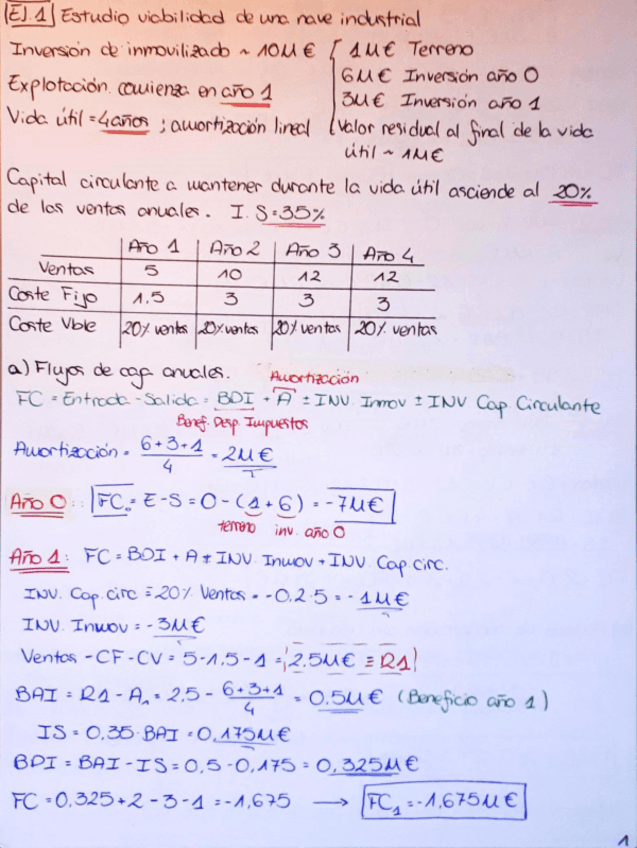 EJ.1 Estudio viabilidad de una nave industrial
Inversión de inmovilizado ~ 10M€ { 1M€ Terreno
6M€ Inversión año 0
Explotación comienza en año 1
3M€ Inversión año 1
Vida útil = 4 años ; amortización lineal
Valor residual al final de la vida
útil ~ 1M€
Capital circulante a mantener durante la vida útil asciende al 20%
de las ventas anuales. I.S = 35%
Año 1 Año 2 Año 3 Año 4
Ventas 5 10 12 12
Coste Fijo 1.5 3 3 3
Coste Vble 20% ventas 20% ventas 20% ventas 20% ventas
a) Flujos de caja anuales.
Amortización
FC = Entrada - Salida = BDI + A ± INV. Inmov ± INV Cap. Circulante
Benef. Desp. Impuestos
Amortización = \frac{6+3+1}{4} = 2M€
Año 0: FC₀ = E - S = 0 - (1 + 6) = -7M€
terreno inv. año 0
Año 1: FC = BDI + A ± INV. Inmov + INV. Cap. circ.
INV. Cap. circ = 20% Ventas = -0,2·5 = -1M€
INV. Inmov = -3M€
Ventas - CF - CV = 5 - 1,5 - 1 = 2,5M€ ≡ R1
BAI = R1 - A₁ = 2,5 - \frac{6+3+1}{4} = 0.5M€ (Beneficio año 1)
IS = 0,35·BAI = 0,175M€
BDI = BAI - IS = 0,5 - 0,175 = 0,325M€
FC = 0,325 + 2 - 3 - 1 = -1,675 → FC₁ = -1,675M€
1